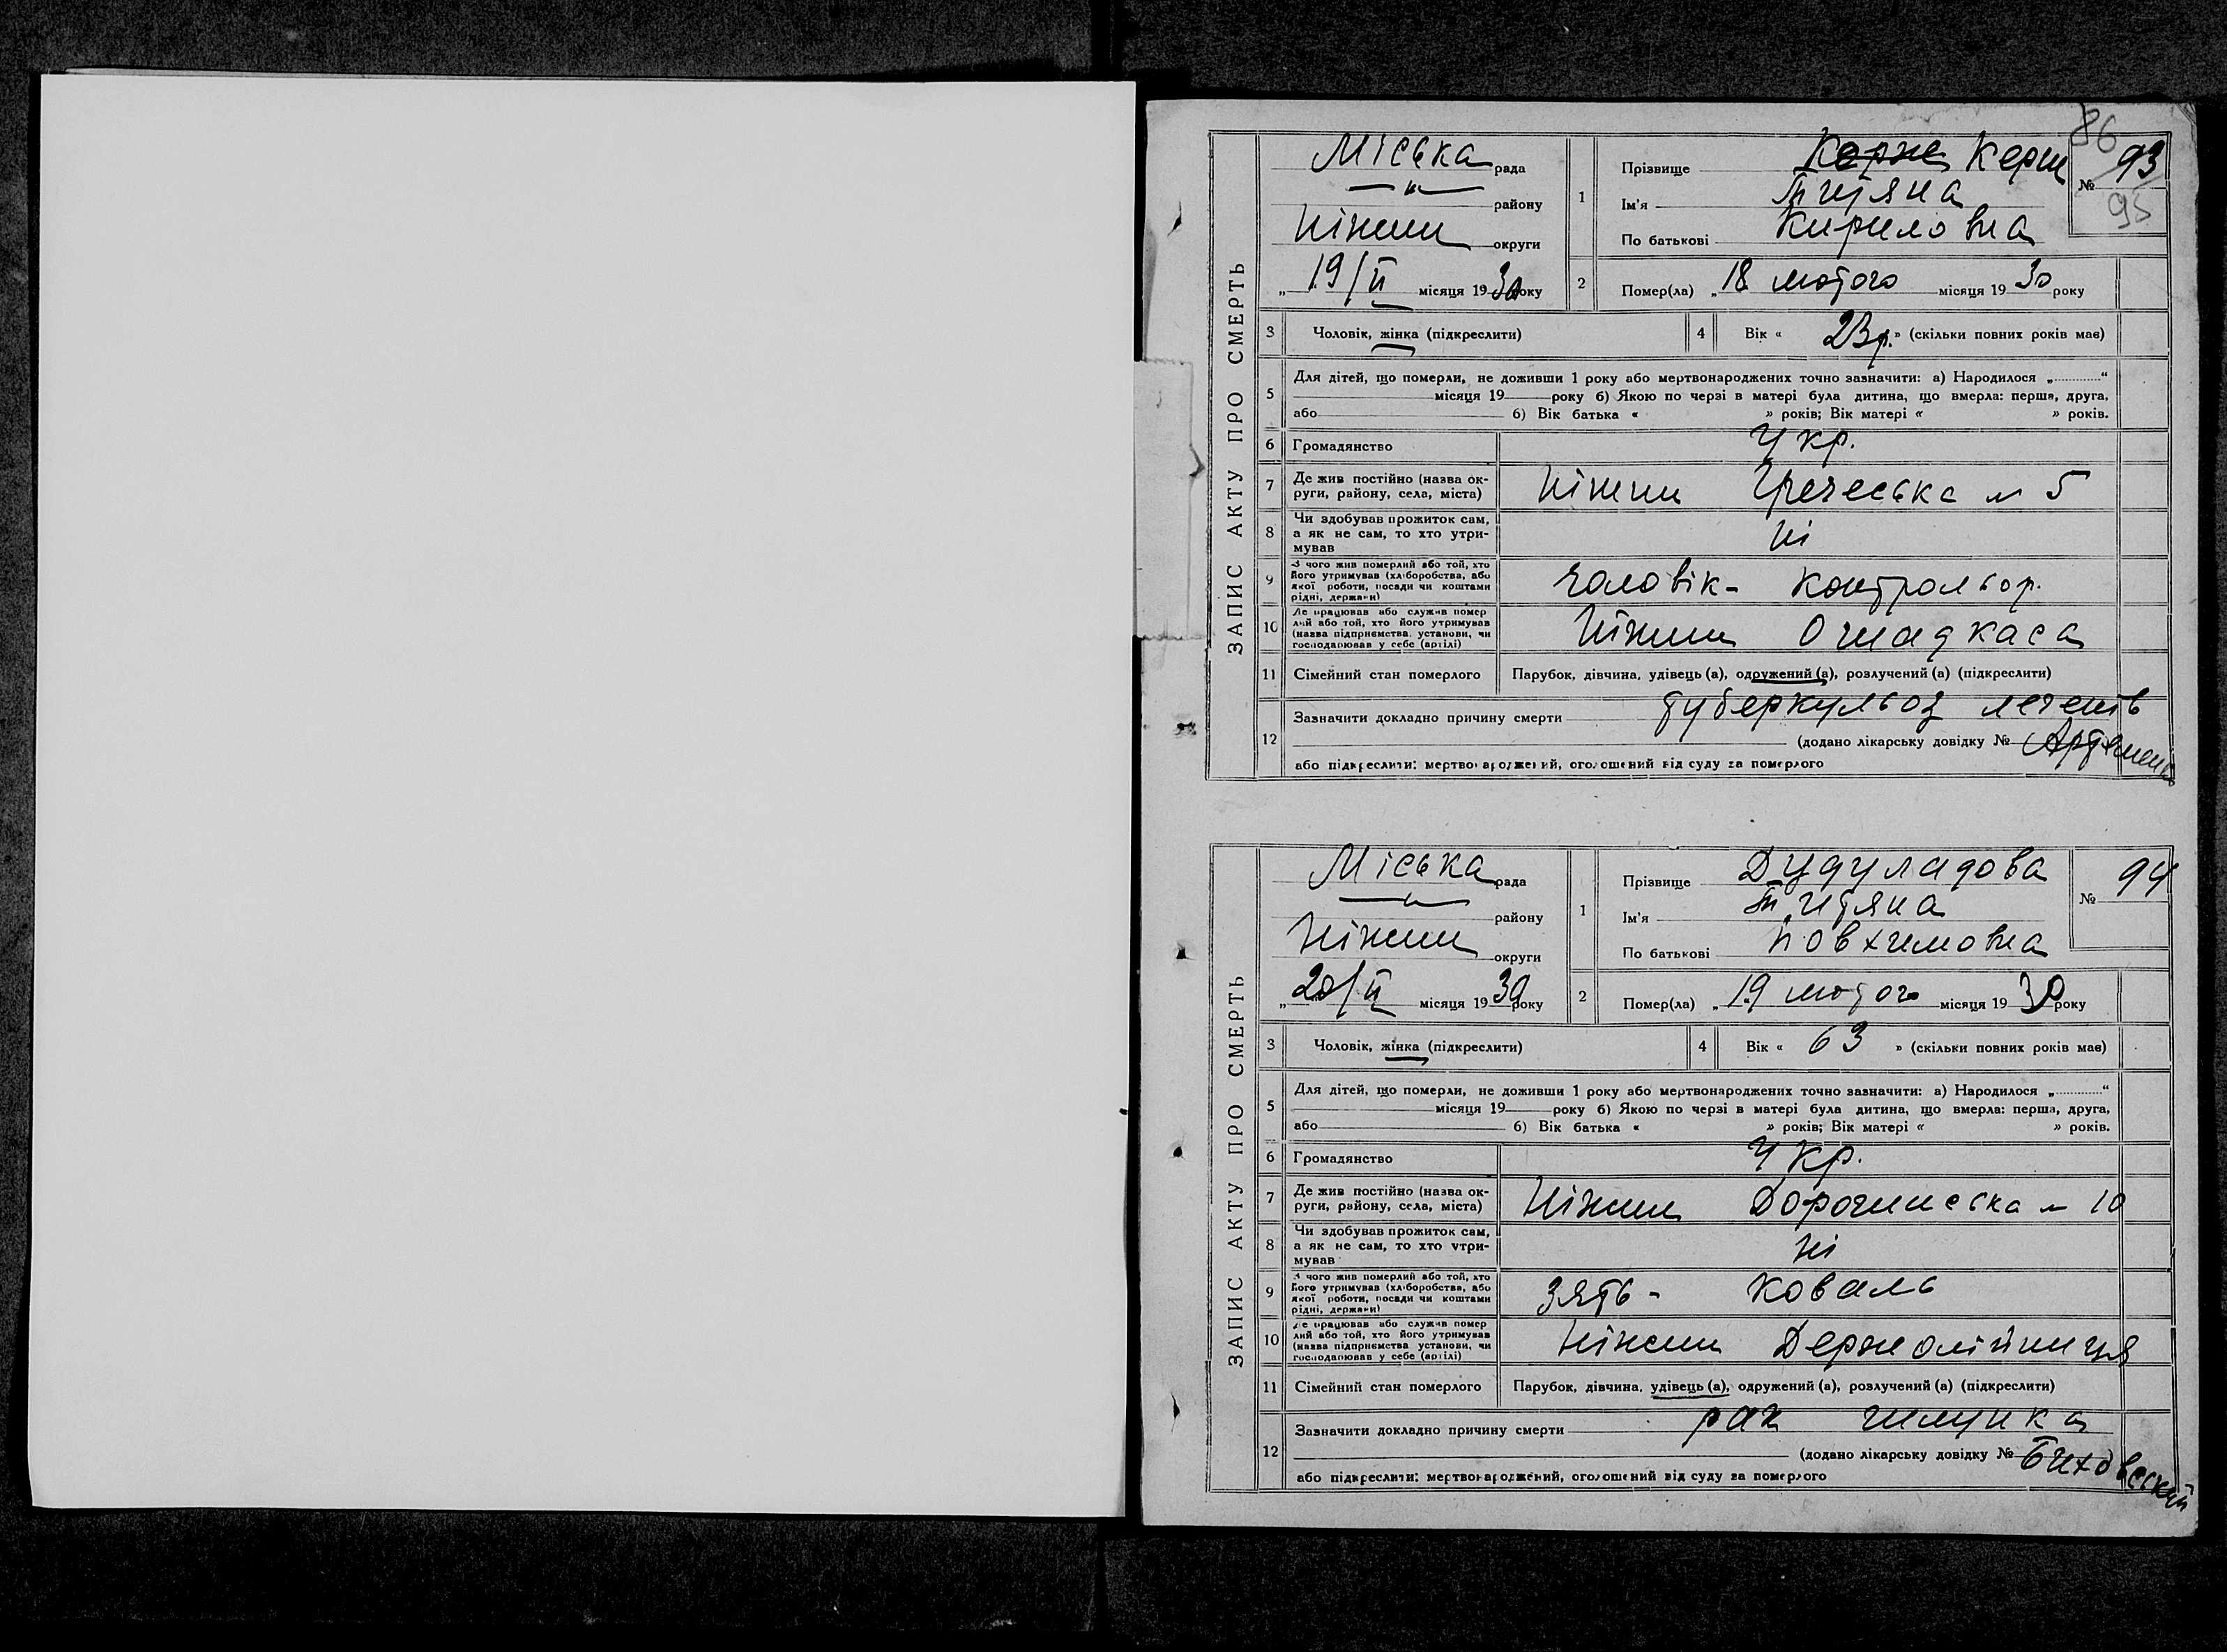 86
ЗАПИС АКТУ ПРО СМЕРТЬ
Міська рада
району
Ніжин округи
„ 19/II місяця 1930 року
1
Прізвище Керж Керш
Ім'я Титяна
По батькові Кириловна
№ 93
95
2
Помер(ла) „ 18 лютого місяця 1930 року
3 Чоловік, жінка (підкреслити)
4 Вік « 23 р. » (скільки повних років має)
5 Для дітей, що померли, не доживши 1 року або мертвонароджених точно зазначити: а) Народилося „ “
місяця 19 року б) Якою по черзі в матері була дитина, що вмерла: перша, друга,
або б) Вік батька « » років; Вік матері « » років.
6 Громадянство Укр.
7 Де жив постійно (назва ок-
руги, району, села, міста) Ніжин Гречеська № 5
8 Чи здобував прожиток сам,
а як не сам, то хто утри-
мував ні
9 З чого жив померлий або той, хто
його утримував (хліборобства, або
якої роботи, посади чи коштами
рідні, держави) чоловік - контрольор.
10 Де працював або служив помер
лий або той, хто його утримував
(назва підприємства, установи, чи
господарював у себе (артілі) Ніжин Ощадкаса
11 Сімейний стан померлого Парубок, дівчина, удівець (а), одружений (а), розлучений (а) (підкреслити)
12 Зазначити докладно причину смерти туберкульоз легенів
(додано лікарську довідку № Артеменко
або підкреслити: мертвонароджений, оголошений від суду за померлого
ЗАПИС АКТУ ПРО СМЕРТЬ
Міська рада
району
Ніжин округи
„ 20/II місяця 1930 року
1
Прізвище Дудуладова
Ім'я Титяна
По батькові Повхимовна
№ 94
2
Помер(ла) „ 19 лютого місяця 1930 року
3 Чоловік, жінка (підкреслити)
4 Вік « 63 » (скільки повних років має)
5 Для дітей, що померли, не доживши 1 року або мертвонароджених точно зазначити: а) Народилося „ “
місяця 19 року б) Якою по черзі в матері була дитина, що вмерла: перша, друга,
або б) Вік батька « » років; Вік матері « » років.
6 Громадянство Укр.
7 Де жив постійно (назва ок-
руги, району, села, міста) Ніжин Дорогинська № 10
8 Чи здобував прожиток сам,
а як не сам, то хто утри-
мував ні
9 З чого жив померлий або той, хто
його утримував (хліборобства, або
якої роботи, посади чи коштами
рідні, держави) зять - коваль
10 Де працював або служив помер
лий або той, хто його утримував
(назва підприємства, установи, чи
господарював у себе (артілі) Ніжин Держолійниця
11 Сімейний стан померлого Парубок, дівчина, удівець (а), одружений (а), розлучений (а) (підкреслити)
12 Зазначити докладно причину смерти рак шлунка
(додано лікарську довідку № Биховський
або підкреслити: мертвонароджений, оголошений від суду за померлого